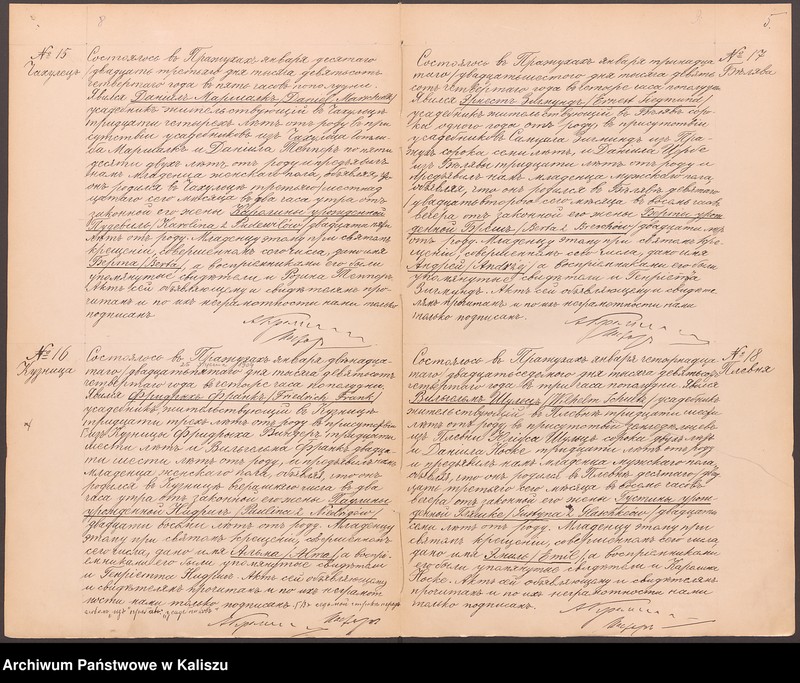 8
№ 15
Чахулецъ
Состоялось въ Пратухахъ января десятаго
/двадцать третьяго дня тысяча девятьсотъ
четвертаго года въ пять часовъ пополудни.
Явился Данiилъ Маршалкъ /Daniel Marschalk/
усадебникъ жительствующiй въ Чахульцѣ
тридцати четырехъ лѣтъ отъ роду, въ при-
сутствiи усадебниковъ изъ Чахульца
Маршалкъ и Данiила Тепперъ по пяти-
десяти двухъ лѣтъ отъ роду и предъявилъ
намъ младенца женскаго пола, объявляя, что
онъ родился въ Чахульцѣ третьяго /шестнад-
цатаго сего мѣсяца въ два часа утра отъ
законной его жены Каролины урожденной
/Karolina z / двадцати пяти
лѣтъ отъ роду. Младенцу этому при святомъ
крещенiи, совершенномъ сего числа, дано имя
Берта /Berta/, а воспрiемниками его были
упомянутые свидѣтели и Розина Тепперъ.
Актъ сей объявляющему и свидѣтелямъ про-
читанъ и по ихъ неграмотности нами только
подписанъ.
№ 16
Кузница
Состоялось въ Пратухахъ января двѣнадца-
таго /двадцать пятаго дня тысяча девятьсотъ
четвертаго года въ четыре часа пополудни.
Явился Фридрихъ Франкъ /Friedrich Frank/
усадебникъ жительствующiй въ Кузницѣ
тридцати трехъ лѣтъ отъ роду въ присутствiи
изъ Кузницы Фридриха Биндеръ тридцати
шести лѣтъ и Вильгельма Франкъ двадца-
ти шести лѣтъ отъ роду, и предъявилъ намъ
младенца женскаго пола, объявляя, что онъ
родился въ Кузницѣ вчерашняго числа въ два
часа утра отъ законной его жены Паулины
урожденной /Paulina z /
двадцати восьми лѣтъ отъ роду. Младенцу
этому при святомъ крещенiи, совершенномъ
сего числа, дано имя Альма /Alma/, а воспрi-
емниками его были упомянутые свидѣтели
и Генрiетта. Актъ сей объявляющему
и свидѣтелямъ прочитанъ и по ихъ неграмот-
ности нами только подписанъ.
5.
№ 17
Бѣлява
Состоялось въ Пратухахъ января тринадца-
таго /двадцать шестого дня тысяча девять-
сотъ четвертаго года въ четыре часа пополудни.
Явился Эрнестъ Зыгмундъ /Ernest Zygmund/
усадебникъ жительствующiй въ Бѣлявѣ соро-
ка одного года отъ роду, въ присутствiи
усадебниковъ Самуила Зыгмундъ изъ Пра-
тухъ сорока семи лѣтъ, и Данiила
изъ Бѣлявы тридцати лѣтъ отъ роду и
предъявилъ намъ младенца мужескаго пола,
объявляя, что онъ родился въ Бѣлявѣ девятаго
/двадцать второго сего мѣсяца въ восемь часовъ
вечера отъ законной его жены Берты урож-
денной /Berta z / двадцати
лѣтъ отъ роду. Младенцу этому при святомъ кре-
щенiи, совершенномъ сего числа, дано имя
Андрей /Andrzej/, а воспрiемниками его были
упомянутые свидѣтели и Генрiетта
Зыгмундъ. Актъ сей объявляющему и свидѣте-
лямъ прочитанъ и по ихъ неграмотности нами
только подписанъ.
№ 18
Плевня
Состоялось въ Пратухахъ января четырнадца-
таго /двадцать седьмого дня тысяча девятьсотъ
четвертаго года въ три часа пополудни. Явился
Вильгельмъ Шульцъ /Wilhelm Schultz/ усадебникъ
жительствующiй въ Плевнѣ тридцати шести
лѣтъ отъ роду въ присутствiи земледѣльцевъ
изъ Плевни Шульцъ сорока двухъ лѣтъ
и Данiила Носке тридцати лѣтъ отъ роду
и предъявилъ намъ младенца мужескаго пола,
объявляя, что онъ родился въ Плевнѣ десятаго /двад-
цать третьяго сего мѣсяца въ восемь часовъ
вечера отъ законной его жены Юстины урож-
денной /Justyna z / двадцати
семи лѣтъ отъ роду. Младенцу этому при
святомъ крещенiи, совершенномъ сего числа,
дано имя Эмиль /Emil/ а воспрiемниками
его были упомянутые свидѣтели и Каролина
Носке. Актъ сей объявляющему и свидѣтелямъ
прочитанъ и по ихъ неграмотности нами
только подписанъ.
Archiwum Państwowe w Kaliszu